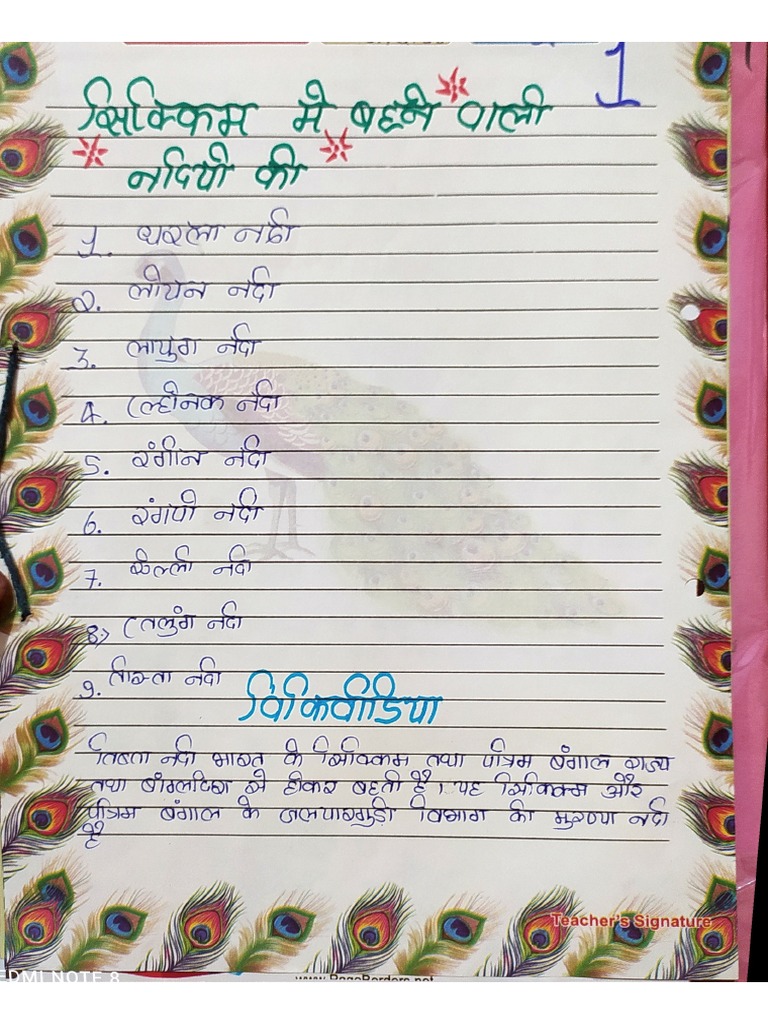 1
सिक्किम मे बहने वाली
नदियो की
1. धरला नदी
2. लोचन नदी
3. लाचुग नदी
4. (ल्होनक नदी
5. रंगीन नदी
6. रंगपो नदी
7. रेल्ली नदी
8.) (तलुंग नदी
9. तिस्ता नदी
विकिपीडिया
तिस्ता नदी भारत के सिक्किम तथा पश्चिम बंगाल राज्य
तथा बांग्लादेश से होकर बहती है। यह सिक्किम और
पश्चिम बंगाल के जलपाईगुड़ी विभाग की मुख्य नदी
है
Teacher's Signature
www.PageBorders.net
REDMI NOTE 8